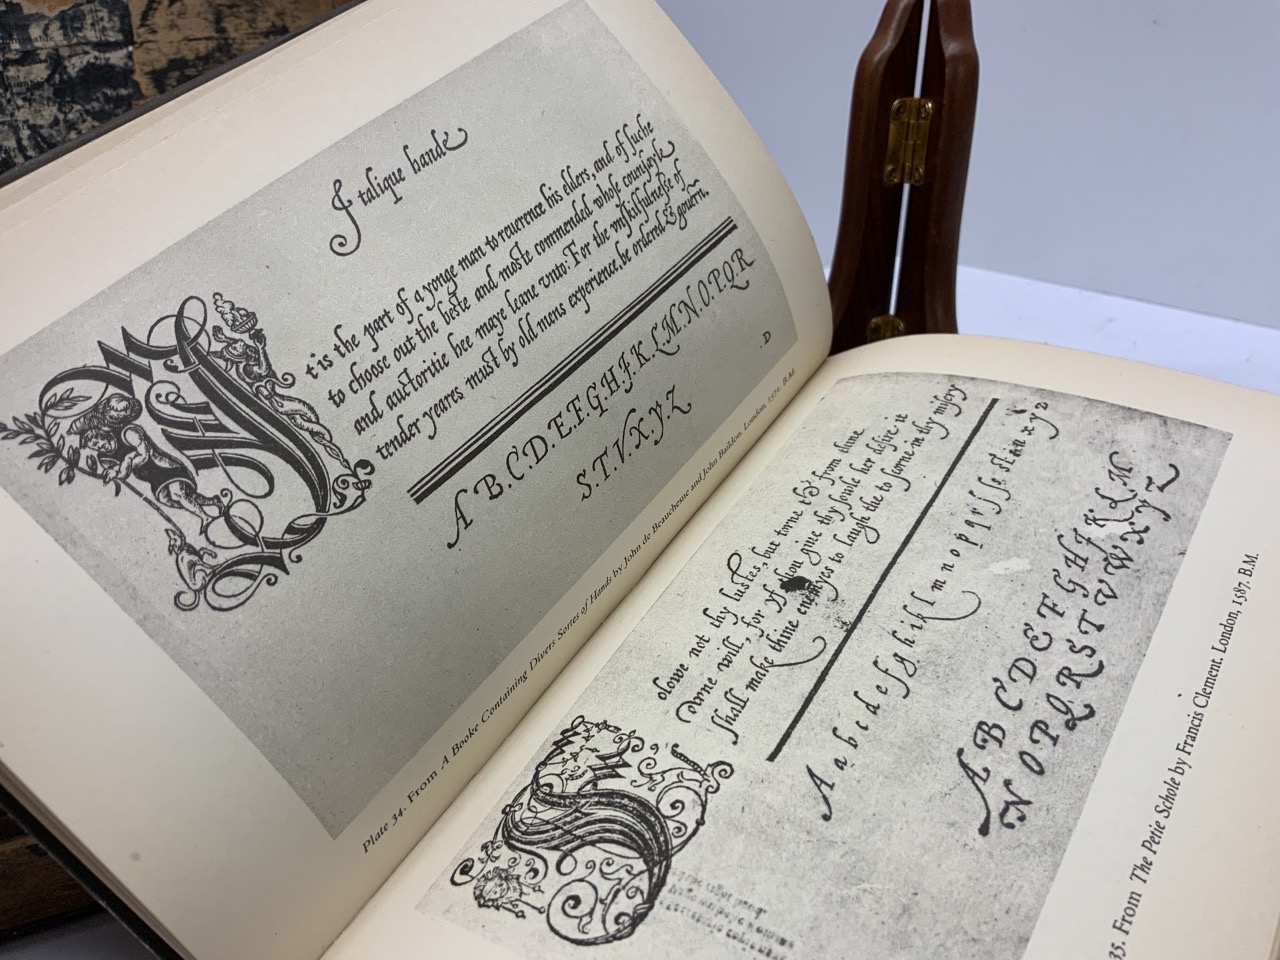 Italique hande
It is the part of a yonge man to reuerence his elders, and of suche
to choose out the beste and moste commended whose counsayle
and auctoritie hee maye leane vnto: For the vnskilfulnesse of
tender yeares must by old mens experience, be ordered & gouern̄.
A.B.C.D.E.F.G.H.J.K.L.M.N.O.P.Q.R
S.T.V.X.Y.Z
.D
Plate 34. From A Booke Containing Divers Sortes of Hands by John de Beauchesne and John Baildon. London, 1571. B.M.
Folowe not thy lustes, but torne the from thine
owne will, for yf thou giue thy sowle her desire it
shall make thine enemyes to laugh the to scorne in thy misery
A a b c d e f g h i k l m n o p q r s
A B C D E F G H J K L M
N O P Q R S T V W X Y Z
35. From The Petie Schole by Francis Clement. London, 1587. B.M.